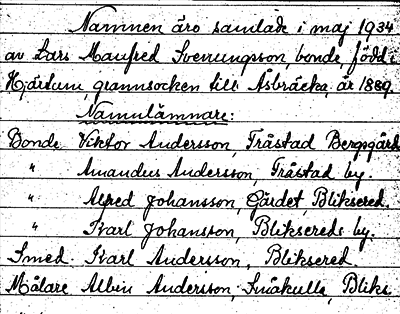 Namnen äro samlade i maj 1934
av Lars Manfred Svenungsson, bonde, född i
Hjärtum, grannsocken till Åsbräcka, år 1889.
Namnlämnare:
Bonde Viktor Andersson, Tråstad Bergsgård
" Amandus Andersson, Tråstad by.
" Alfred Johansson, Gärdet, Bliksered.
" Karl Johansson, Bliksereds by.
Smed Karl Andersson, Bliksered.
Målare Albin Andersson, Småkulla, Bliks